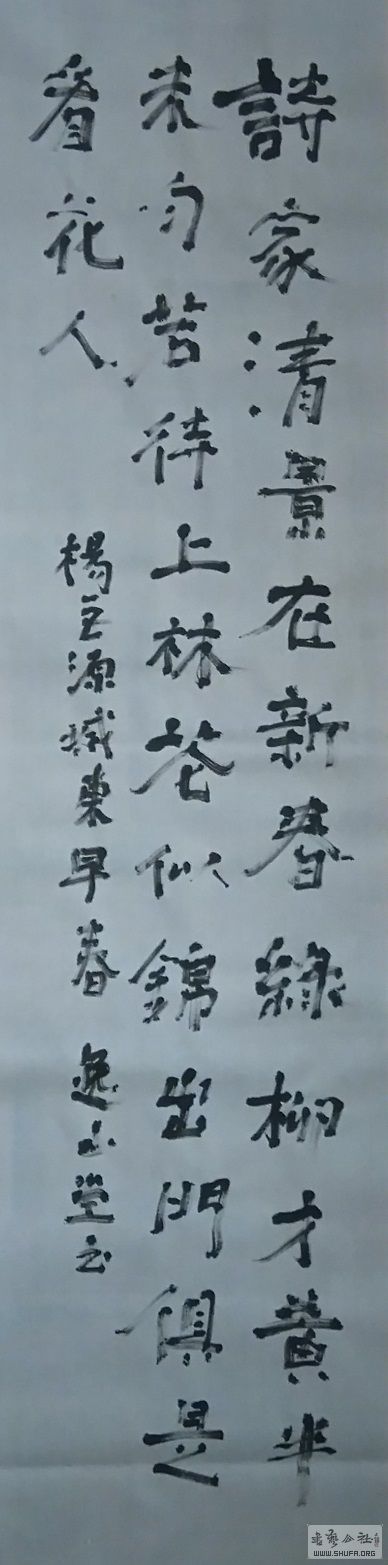 詩家清景在新春綠柳才黃半
未勻若待上林花似錦出門俱是
看花人
楊巨源城東早春 逸山堂書
書藝公社
WWW.SHUFA.ORG